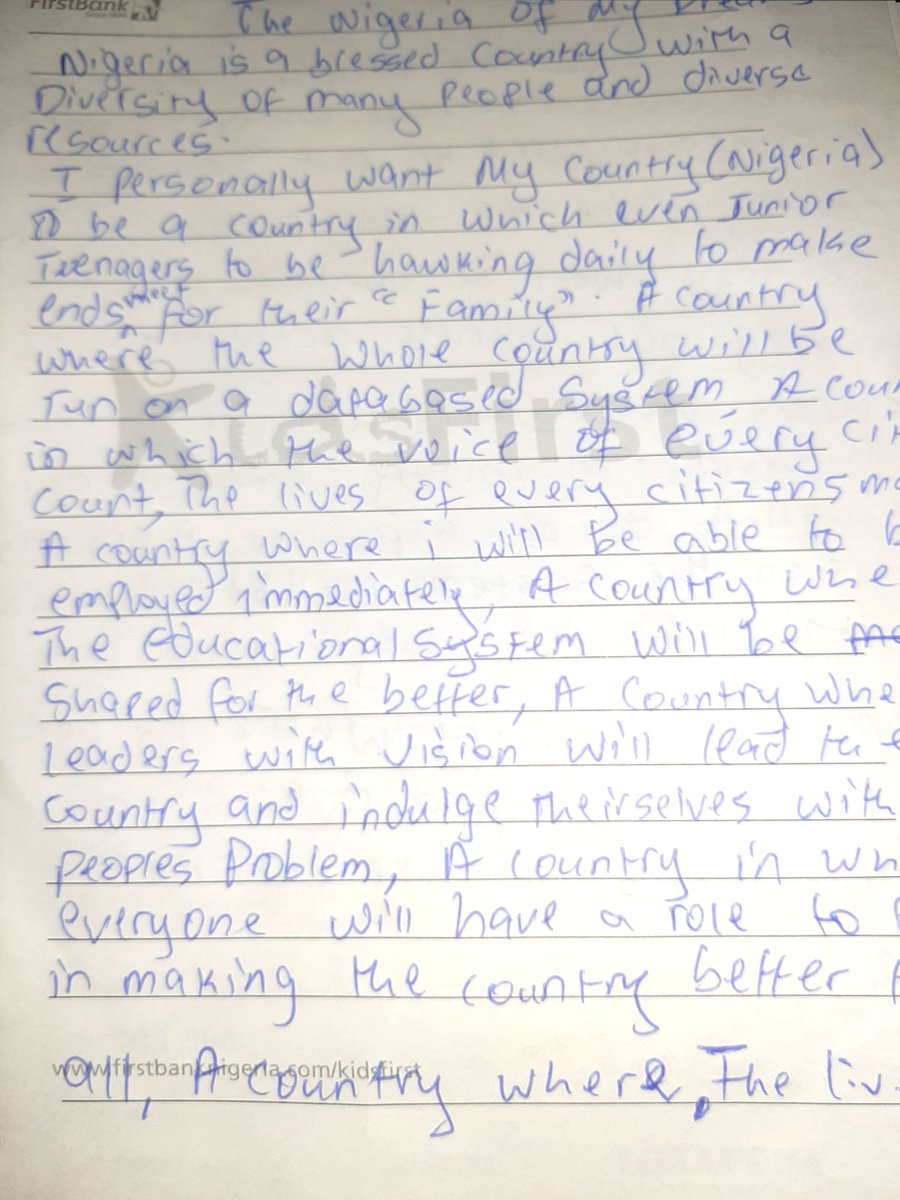 FirstBank
The Nigeria Of My
Nigeria is a blessed Country with a
Diversity of many People and diverse
resources.
I Personally want My Country (Nigeria)
to be a country in which even Junior
Teenagers to be hawking daily to make
ends meet for their "Family". A country
where the whole country will be
run on a databased System A
in which the voice of every
count, The lives of every citizens
A country where i will be able to
employed immediately, A country
The Educational System will be
Shaped for the better, A Country
Leaders with Vision will lead the
Country and indulge theirselves with
Peoples Problem, A country in
everyone will have a role to
in making the country better
www.firstbanknigeria.com/kidsfirst
all, A country where, The
KidsFirst